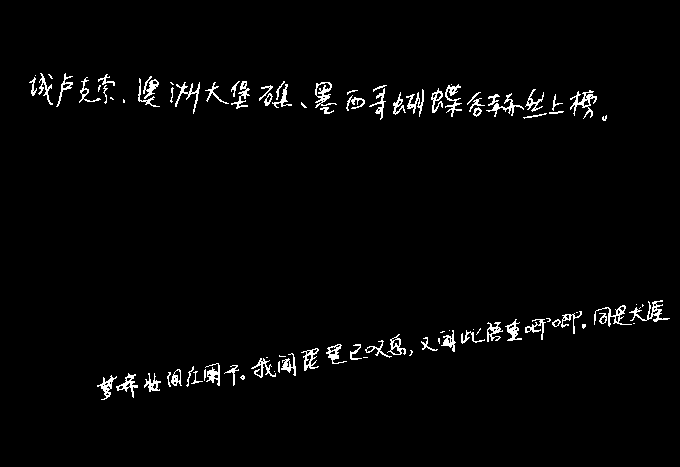 城卢克索、澳洲大堡礁、墨西哥蝴蝶谷赫然上榜。
梦啼妆泪红阑干。我闻琵琶已叹息，又闻此语重唧唧。同是天涯